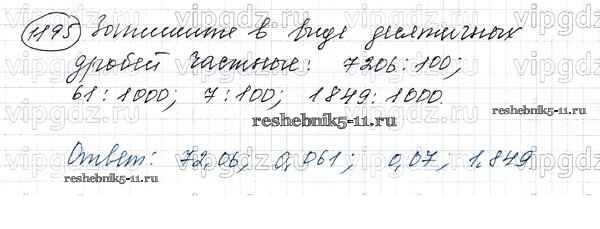 1195 Запишите в виде десятичных
дробей частные: 7206:100;
61:1000; 7:100; 1849:1000.
reshebnik5-11.ru
Ответ: 72,06; 0,061; 0,07; 1,849
reshebnik5-11.ru